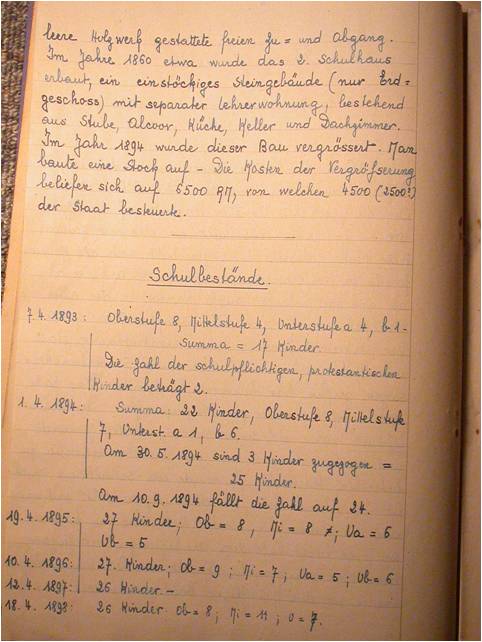 leere Holzwerk gestattete freien Zu = und Abgang.
Im Jahre 1860 etwa wurde das 2. Schulhaus
erbaut, ein einstöckiges Steingebäude (nur Erd=
geschoss) mit separater Lehrerwohnung, bestehend
aus Stube, Alcoov, Küche, Keller und Dachzimmer.
Im Jahr 1894 wurde dieser Bau vergrössert. Man
baute eine Stock auf - Die Kosten der Vergröfserung
beliefen sich auf 6500 M, von welchen 4500 (2500?)
der Staat besteuerte.
Schulbestände.
7.4. 1893: Oberstufe 8, Mittelstufe 4, Unterstufe a 4, b 1 -
Summa = 17 Kinder.
Die Zahl der schulpflichtigen, protestantischen
Kinder beträgt 2.
1. 4. 1894: Summa: 22 Kinder, Oberstufe 8, Mittelstufe
7, Unterst. a 1, b 6.
Am 30.5. 1894 sind 3 Kinder zugezogen =
25 Kinder.
Am 10.9. 1894 fällt die Zahl auf 24.
19.4. 1895: 27 Kinder; Ob = 8, Mi = 8; Ua = 6
Ub = 5
10.4. 1896: 27. Kinder; Ob = 9; Mi = 7; Ua = 5; Ub = 6
12.4. 1897: 26 Kinder. -
18.4. 1898: 26 Kinder. Ob = 8; Mi = 11; U = 7.